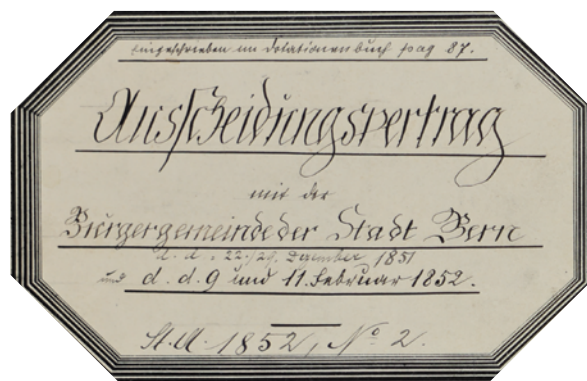 eingeschrieben im Dotationenbuch pag 87.
Ausscheidungsvertrag
mit der
Burgergemeinde der Stadt Bern
d. d. 22./29. Dezember 1851
und d. d. 9 und 11. Februar 1852.
St. A. 1852, No 2.